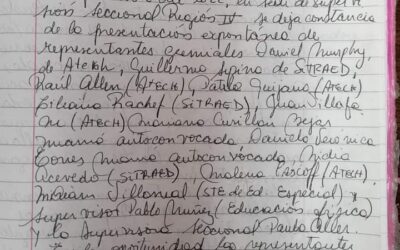 en sede de supervi
sión Seccional Región IV se deja constancia
de la presentación espontánea de
representantes gremiales Daniel Murphy,
de Atech, Guillermo Spina de SITRAED,
Raúl Allen (ATECH) Patricia Quijano (ATECH)
Liliana Rachef (SITRAED), Juan Villafa
ñe (ATECH) Mariana Curillán
mamá autoconvocada Daniela Verónica
Torres mamá autoconvocada, Nidia
Acevedo (SITRAED) Malena (ATECH),
Miriam Villarreal (STE de Ed. Especial) y
Supervisor Pablo Nuñez (Educación física)
y la Supervisora Seccional Paula Allen.
oportunidad los representantes